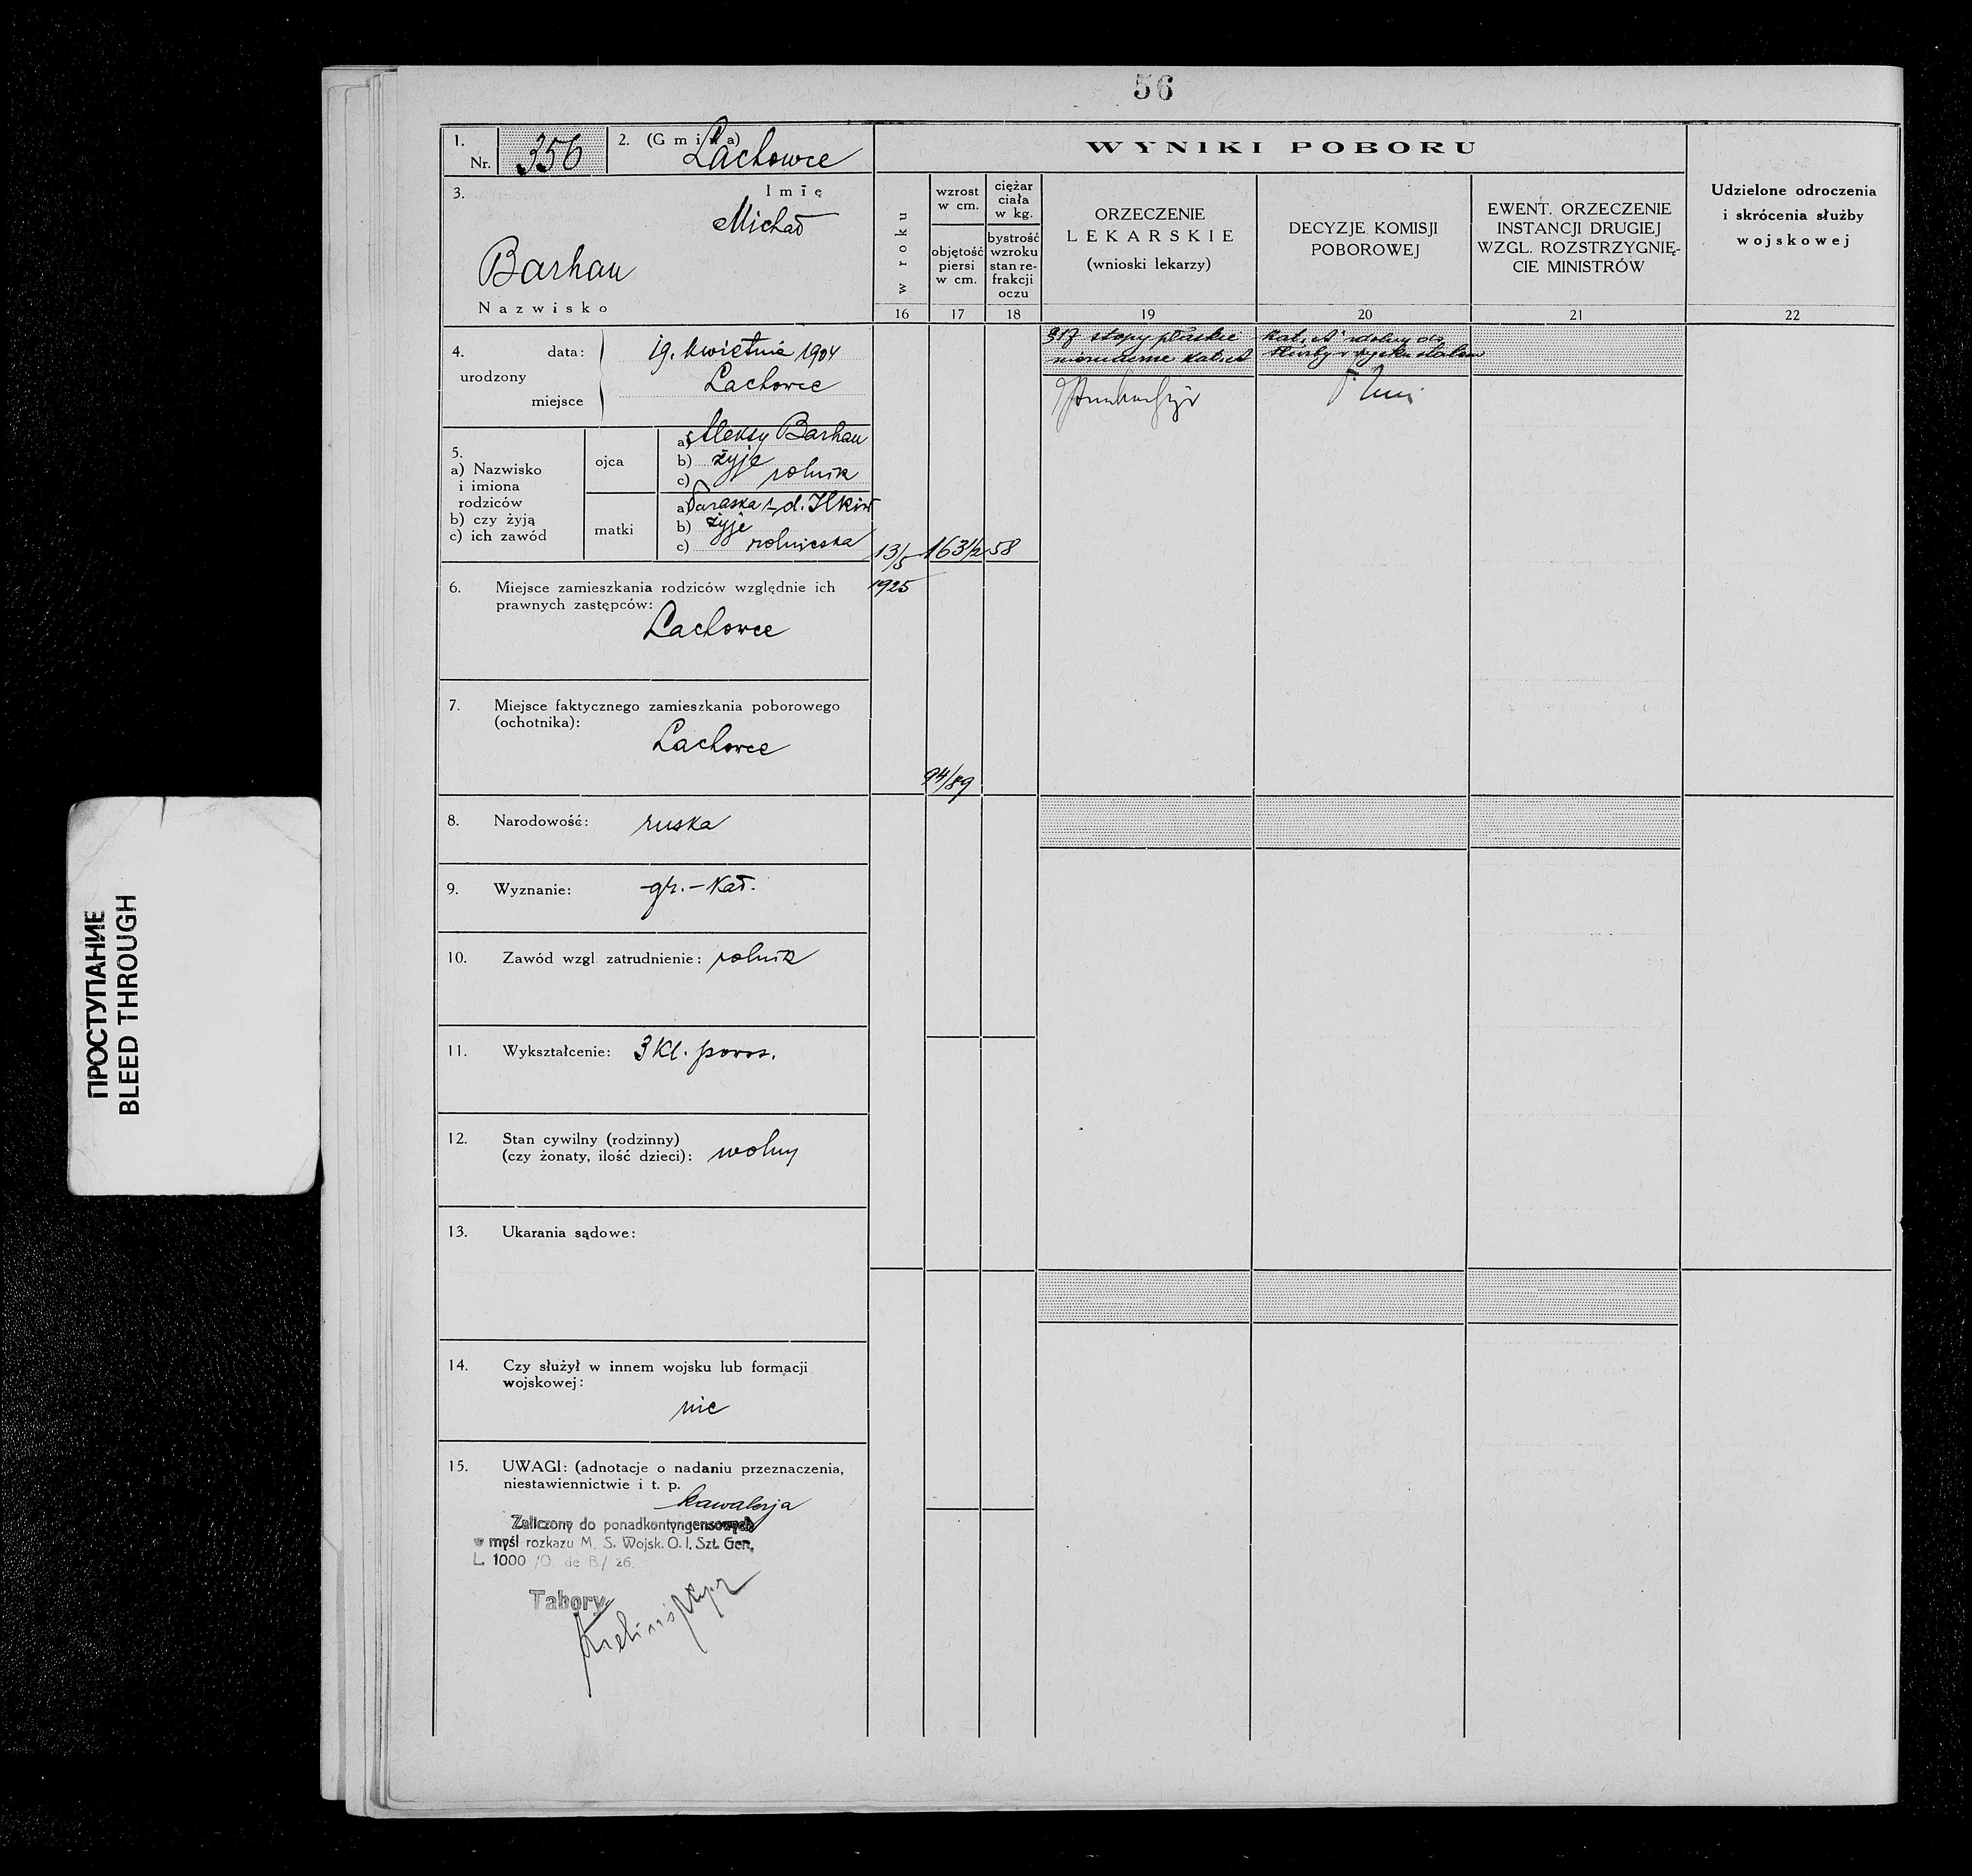 56
1.
Nr. 356
2. (Gmina) Lachowce
3. Imię
Michał
Barhan
Nazwisko
4. urodzony
data: 19. kwietnia 1904
miejsce Lachowce
5.
a) Nazwisko
i imiona
rodziców
b) czy żyją
c) ich zawód
ojca
a) Aleksy Barhan
b) żyje
c) rolnik
matki
a) Paraska z d. Ilkiw
b) żyje
c) rolniczka
6. Miejsce zamieszkania rodziców względnie ich
prawnych zastępców:
Lachowce
7. Miejsce faktycznego zamieszkania poborowego
(ochotnika):
Lachowce
8. Narodowość: ruska
9. Wyznanie: gr.-kat.
10. Zawód wzgl. zatrudnienie: rolnik
11. Wykształcenie: 3 kl. powsz.
12. Stan cywilny (rodzinny)
(czy żonaty, ilość dzieci): wolny
13. Ukarania sądowe:
14. Czy służył w innem wojsku lub formacji
wojskowej:
nie
15. UWAGI: (adnotacje o nadaniu przeznaczenia,
niestawiennictwie i t. p.
kawalerja
Zaliczony do ponadkontyngensowych
w myśl rozkazu M. S. Wojsk. O. I. Szt. Gen.
L. 1000 /O. de B./ 26.
Tabory
WYNIKI POBORU
w roku
16
wzrost
w cm.
objętość
piersi
w cm.
17
ciężar
ciała
w kg.
bystrość
wzroku
stan re-
frakcji
oczu
18
ORZECZENIE
LEKARSKIE
(wnioski lekarzy)
19
DECYZJE KOMISJI
POBOROWEJ
20
EWENT. ORZECZENIE
INSTANCJI DRUGIEJ
WZGL. ROZSTRZYGNIĘ-
CIE MINISTRÓW
21
Udzielone odroczenia
i skrócenia służby
wojskowej
22
13/5
1925
163½
58
94/89
317 stopy płaskie
kat. A zdolny do
służby w wojsku stałem
ПРОСТУПАНИЕ
BLEED THROUGH